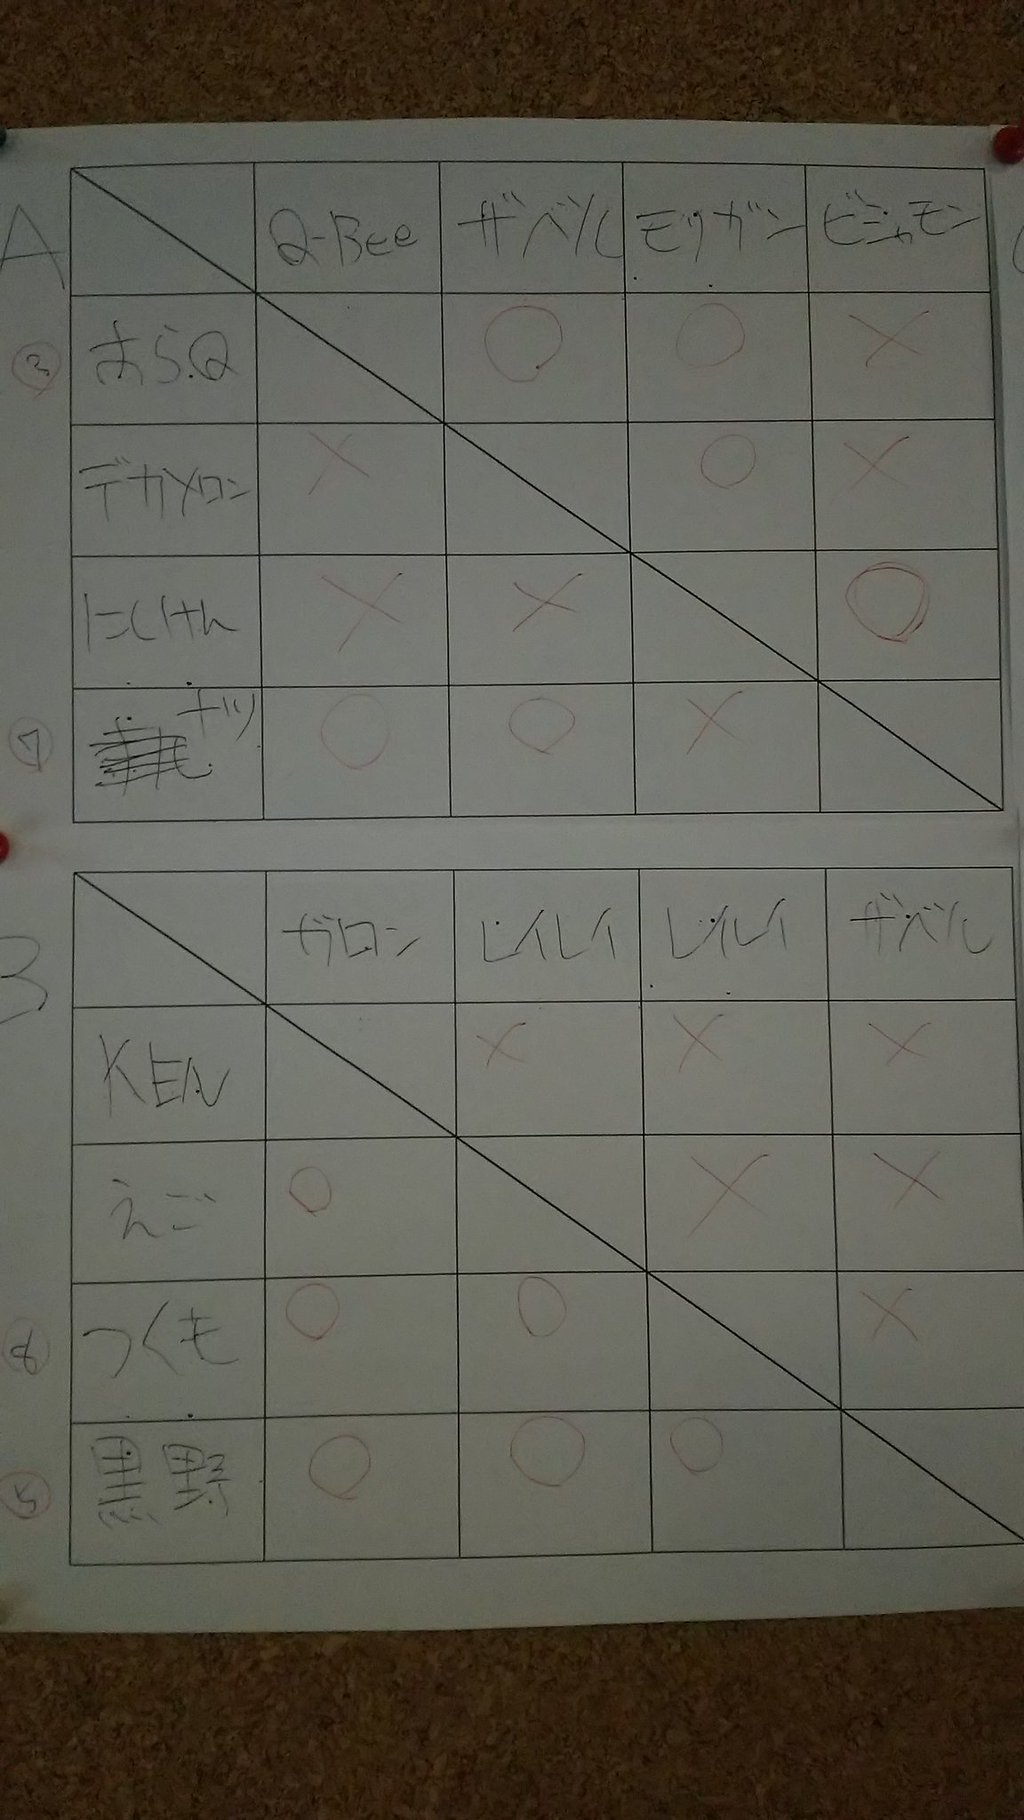 A
Q-Bee ザベル モリガン ビシャモン
③ あらQ ○ ○ ×
デカメロン × ○ ×
にしけん × × ○
⑦ ナツ ○ ○ ×
B
ガロン レイレイ レイレイ ザベル
KEN × × ×
えご ○ × ×
つくも ○ ○ ×
⑤ 黒野 ○ ○ ○